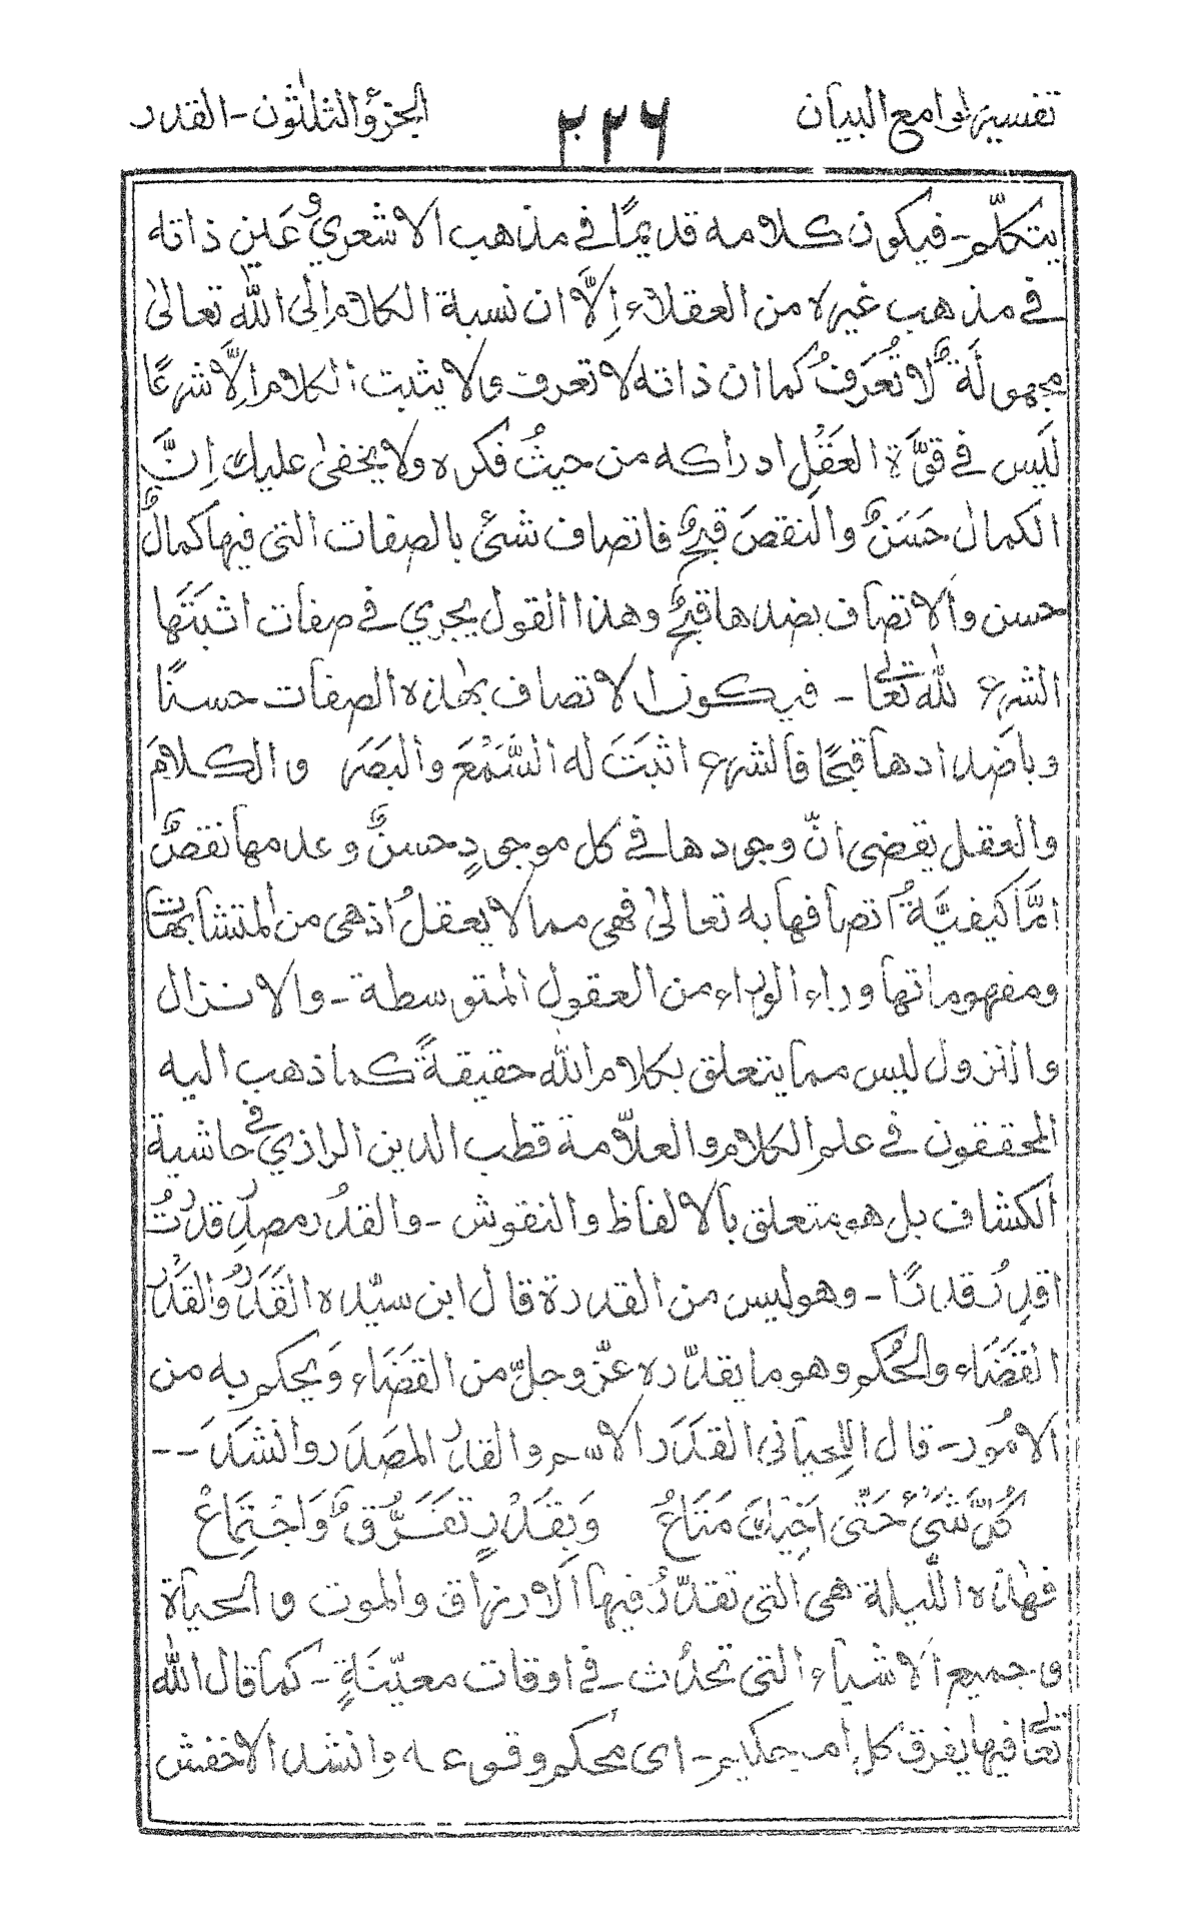 تفسير لوامع البيان ٢٢٦ الجزؤ الثلثون - القدر
يتكلّم - فيكون كلامه قديمًا في مذهب الاشعريُّ وعَين ذاته
في مذهب غيره من العقلاء اِلَّا ان نسبة الكلام اِلى الله تعالىٰ
مجهولَةٌ لا تُعرَفُ كما ان ذاته لا تعرف ولا يثبت الكلام اِلَّا شرعًا
لَيس في قوَّة العَقْلِ ادراكه من حيثُ فكره ولا يخفىٰ عليك اِنَّ
الكمال حَسَنٌ والنقصَ قبحٌ فاتصاف شئ بالصفات التى فيها كمالٌ
حسن والاتصاف بضدها قبحٌ وهذا القول يجري في صفات اثبَتَها
الشرع لله تعالٰى - فيكون الاتصاف بهٰذه الصفات حسنًا
وباَضدادها قبحًا فالشرع اثبَتَ له السَّمْعَ والبَصَر و الكلامَ
والعقل يقضى انّ وجودها في كل موجودٍ حسنٌ وعدمها نقصٌ
امَّا كيفيَّةُ اتصافها به تعالىٰ فهى مما لا يعقلُ اذ هى من المتشابهات
ومفهوماتها وراء الوراء من العقول المتوسطة - والانزال
والنزول ليس مما يتعلق بكلام الله حقيقةً كما ذهب اليه
المحققون في علم الكلام والعلاّمة قطب الدين الرازي في حاشية
الكشاف بل هو متعلق بالالفاظ والنقوش - والقدْر مصدر قدرتُ
اقدِرُ قدرًا - وهو ليس من القدرة قال ابن سيّده القَدَرُ والقَدْرُ
القَضَاء والحُكم وهو ما يقدّره عزّ وجلّ من القَضَاء وَيحكم به من
الامُور - قال اللِحيانى القَدَر الاسم والقدْر المصَدَر وانشَدَ --
كُلُّ شَئٍ حَتّٰى اَخِيكَ مَتَاعُ وَبِقَدْرٍ تَفَرُّقٌ وَاجْتِمَاعْ
فهٰذه اللَّيلة هى التى تقدّرُ فيها الارزاق والموت و الحياة
و جميع الاشياء التى تحدُث - في اوقات معيّنَةٍ - كما قال الله
تعالىٰ فيها يفرق كل امر حكيم - اى محكم وقوعه وانشد الاخفش